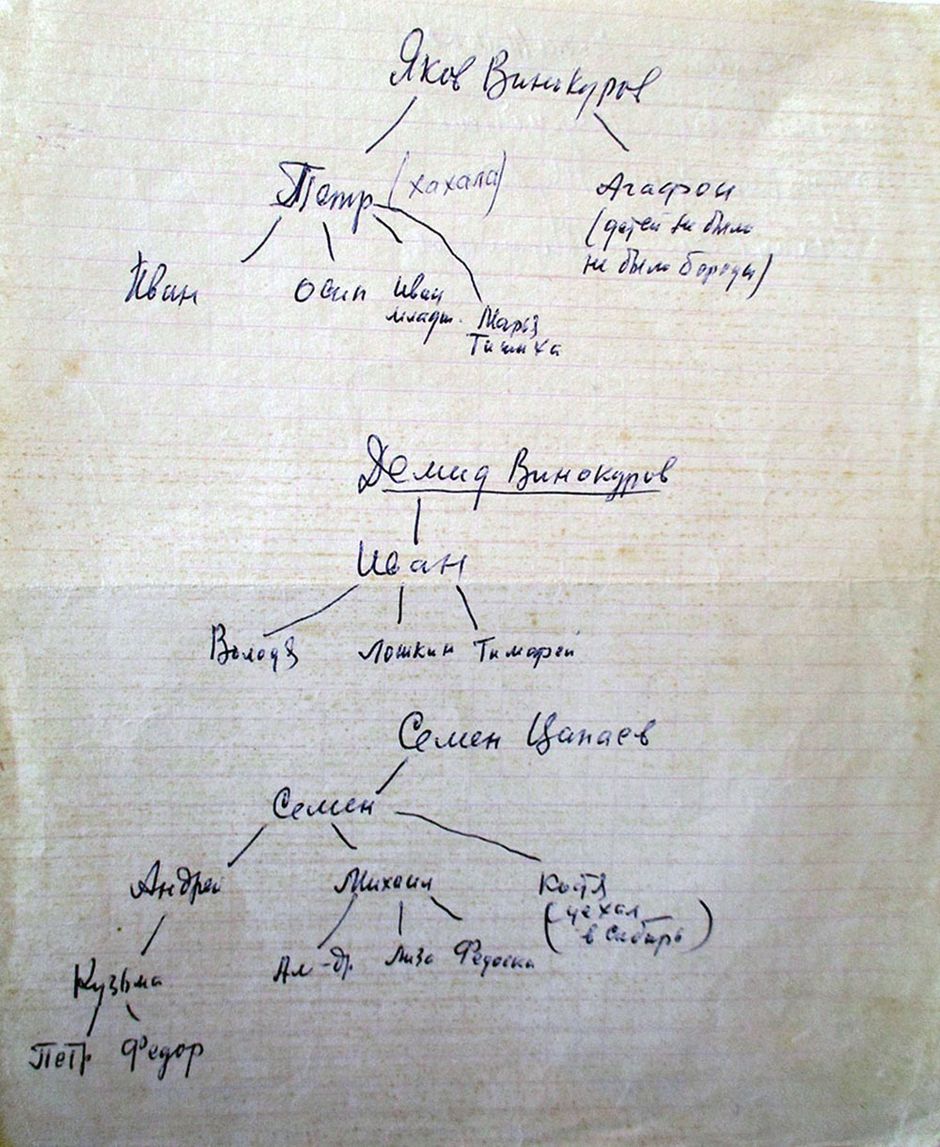 Яков Винокуров
Петр (хахала)
Агафон
(детей не было
не было бороды)
Иван
Осип
Иван
младш.
Марья
Тишиха
Демид Винокуров
Иван
Володя
Лошкин
Тимофей
Семен Цапаев
Семен
Андрей
Михаил
Костя
(уехал
в Сибирь)
Кузьма
Ал-др.
Лиза
Федоска
Петр
Федор